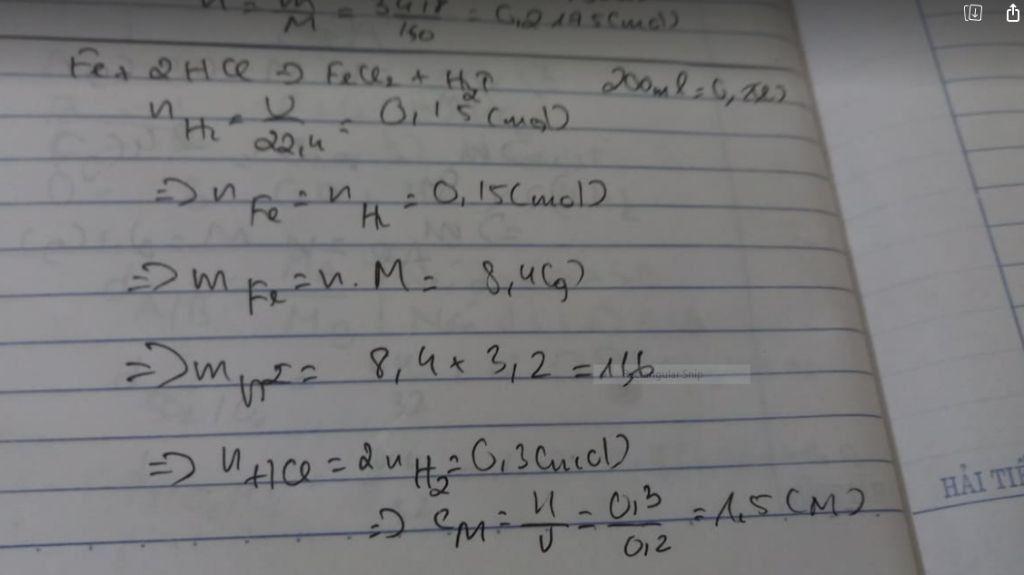 n = m/M = 34,8/160 = 0,2175(mol)
Fe + 2HCl => FeCl₂ + H₂↑ 200ml = 0,2(l)
n H₂ = V/22,4 = 0,15(mol)
=> n Fe = n H₂ = 0,15(mol)
=> m Fe = n.M = 8,4(g)
=> m = 8,4 x 3,2 = 11,6
=> n HCl = 2n H₂ = 0,3(mol)
=> C M = n/V = 0,3/0,2 = 1,5(M)
HẢI TIẾ